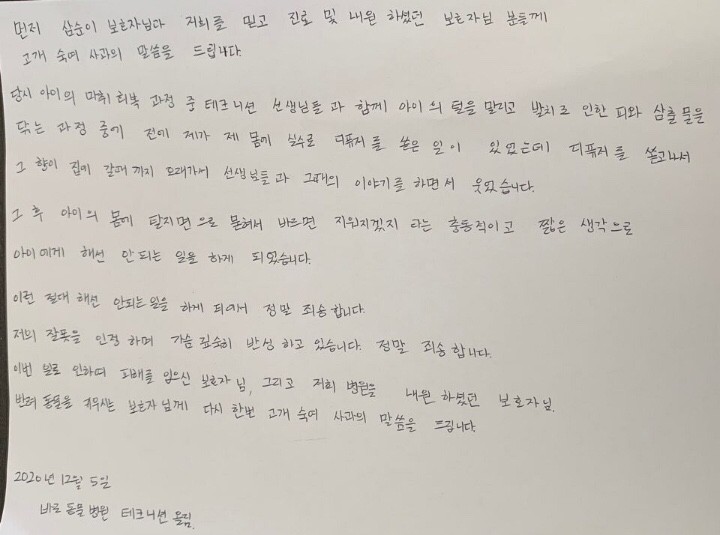 먼저 삼순이 보호자님과 저희를 믿고 진료 및 내원 하셨던 보호자님 분들께
고개 숙여 사과의 말씀을 드립니다.
당시 아이의 마취 회복 과정 중 테크니션 선생님들과 함께 아이의 털을 말리고 발치로 인한 피와 삼출물을
닦는 과정 중에 전에 제가 제 몸에 실수로 디퓨저를 쏟은 일이 있었는데 디퓨저를 쏟고나서
그 향이 집에 갈때까지 오래가서 선생님들과 그때의 이야기를 하면서 웃었습니다.
그 후 아이의 몸에 탈지면으로 묻혀서 바르면 지워지겠지 라는 충동적이고 짧은 생각으로
아이에게 해선 안되는 일을 하게 되었습니다.
이런 절대 해선 안되는일을 하게 되어서 정말 죄송합니다.
저의 잘못을 인정하며 가슴 깊숙히 반성 하고 있습니다. 정말 죄송합니다.
이번 일로 인하여 피해를 입으신 보호자님, 그리고 저희 병원을 내원 하셨던 보호자님.
반려 동물을 키우시는 보호자님께 다시 한번 고개 숙여 사과의 말씀을 드립니다.
2020년 12월 5일
바로 동물 병원 테크니션 올림.